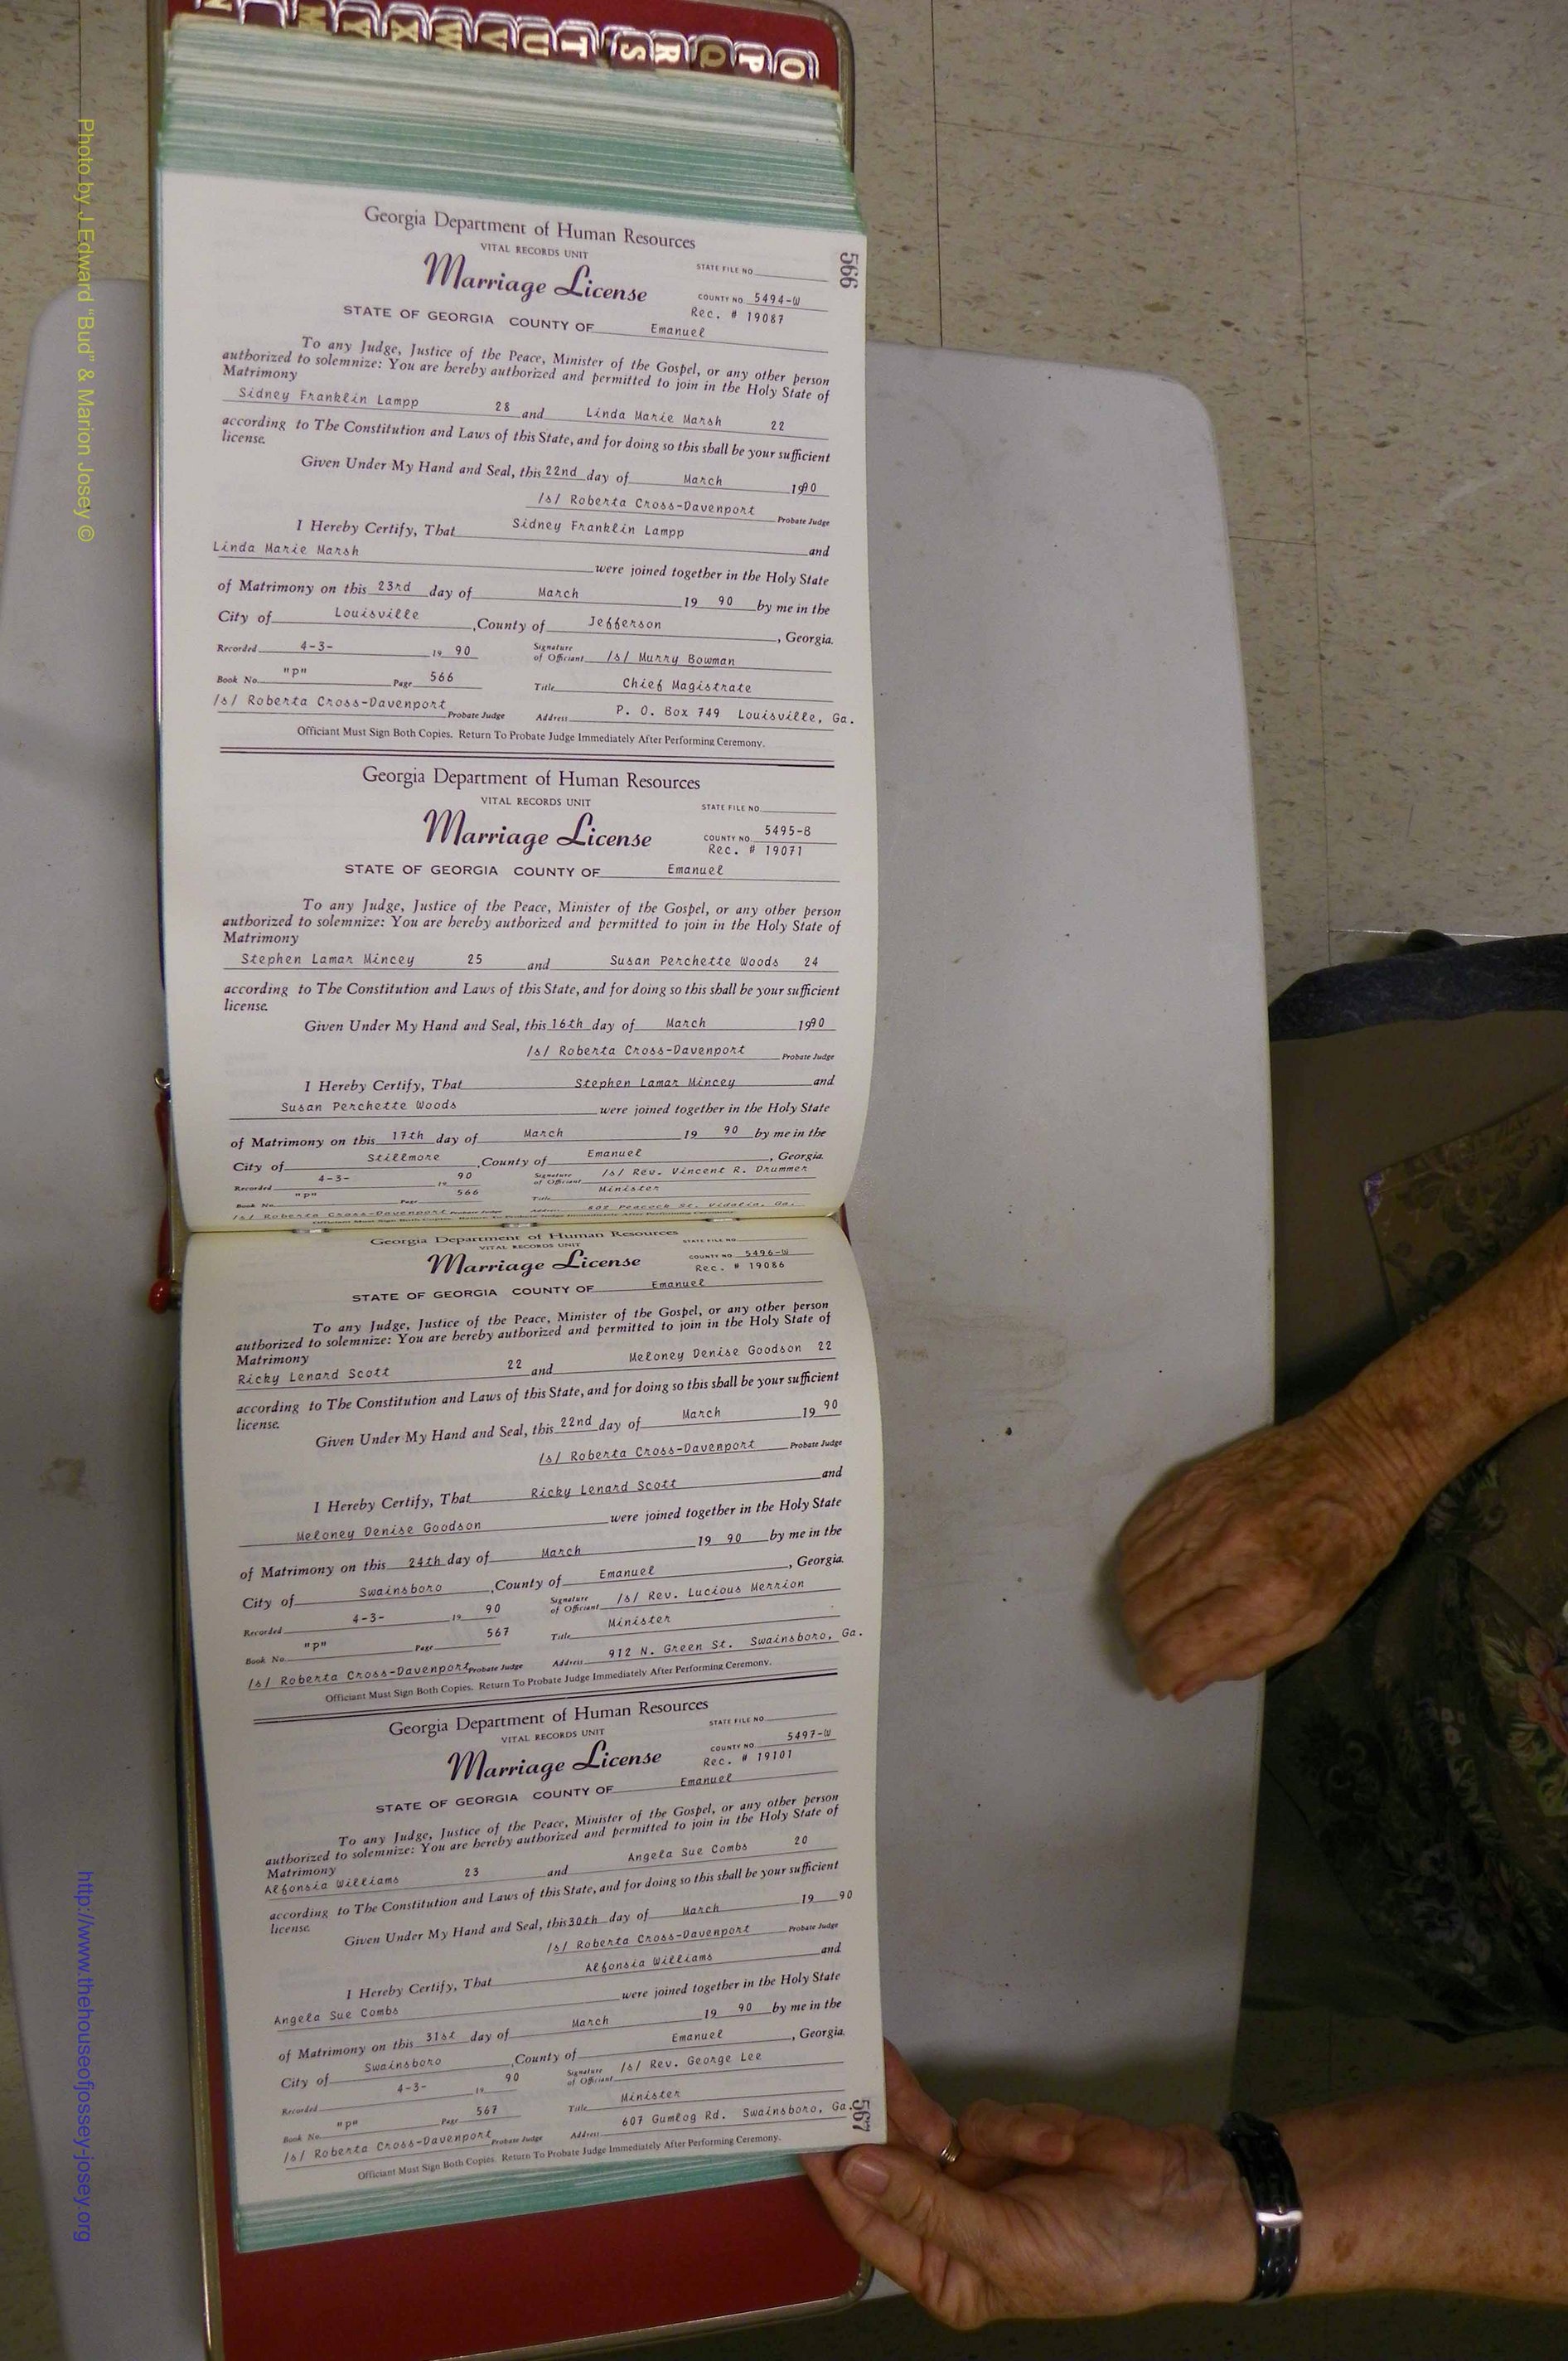 N M Y X W V U T S R Q P O
566
Georgia Department of Human Resources
VITAL RECORDS UNIT
STATE FILE NO.
Marriage License
COUNTY NO. 5494-W
Rec. # 19087
STATE OF GEORGIA COUNTY OF Emanuel
To any Judge, Justice of the Peace, Minister of the Gospel, or any other person
authorized to solemnize: You are hereby authorized and permitted to join in the Holy State of
Matrimony
Sidney Franklin Lampp 28 and Linda Marie Marsh 22
according to The Constitution and Laws of this State, and for doing so this shall be your sufficient
license.
Given Under My Hand and Seal, this 22nd day of March 1990
/s/ Roberta Cross-Davenport Probate Judge
I Hereby Certify, That Sidney Franklin Lampp and
Linda Marie Marsh were joined together in the Holy State
of Matrimony on this 23rd day of March 19 90 by me in the
City of Louisville, County of Jefferson, Georgia.
Recorded 4-3- 19 90 Signature of Officiant /s/ Murry Bowman
Book No. "p" Page 566 Title Chief Magistrate
/s/ Roberta Cross-Davenport Probate Judge Address P. O. Box 749 Louisville, Ga.
Officiant Must Sign Both Copies. Return To Probate Judge Immediately After Performing Ceremony.
Georgia Department of Human Resources
VITAL RECORDS UNIT
STATE FILE NO.
Marriage License
COUNTY NO. 5495-B
Rec. # 19071
STATE OF GEORGIA COUNTY OF Emanuel
To any Judge, Justice of the Peace, Minister of the Gospel, or any other person
authorized to solemnize: You are hereby authorized and permitted to join in the Holy State of
Matrimony
Stephen Lamar Mincey 25 and Susan Perchette Woods 24
according to The Constitution and Laws of this State, and for doing so this shall be your sufficient
license.
Given Under My Hand and Seal, this 16th day of March 1990
/s/ Roberta Cross-Davenport Probate Judge
I Hereby Certify, That Stephen Lamar Mincey and
Susan Perchette Woods were joined together in the Holy State
of Matrimony on this 17th day of March 19 90 by me in the
City of Stillmore, County of Emanuel, Georgia.
Recorded 4-3- 19 90 Signature of Officiant /s/ Rev. Vincent R. Drummer
Book No. "p" Page 566 Title Minister
/s/ Roberta Cross-Davenport Probate Judge Address 602 Peacock St. Vidalia, Ga.
Officiant Must Sign Both Copies. Return To Probate Judge Immediately After Performing Ceremony.
Georgia Department of Human Resources
VITAL RECORDS UNIT
STATE FILE NO.
Marriage License
COUNTY NO. 5496-W
Rec. # 19086
STATE OF GEORGIA COUNTY OF Emanuel
To any Judge, Justice of the Peace, Minister of the Gospel, or any other person
authorized to solemnize: You are hereby authorized and permitted to join in the Holy State of
Matrimony
Ricky Lenard Scott 22 and Meloney Denise Goodson 22
according to The Constitution and Laws of this State, and for doing so this shall be your sufficient
license.
Given Under My Hand and Seal, this 22nd day of March 19 90
/s/ Roberta Cross-Davenport Probate Judge
I Hereby Certify, That Ricky Lenard Scott and
Meloney Denise Goodson were joined together in the Holy State
of Matrimony on this 24th day of March 19 90 by me in the
City of Swainsboro, County of Emanuel, Georgia.
Recorded 4-3- 19 90 Signature of Officiant /s/ Rev. Lucious Merrion
Book No. "p" Page 567 Title Minister
/s/ Roberta Cross-Davenport Probate Judge Address 912 N. Green St. Swainsboro, Ga.
Officiant Must Sign Both Copies. Return To Probate Judge Immediately After Performing Ceremony.
Georgia Department of Human Resources
VITAL RECORDS UNIT
STATE FILE NO.
Marriage License
COUNTY NO. 5497-W
Rec. # 19101
STATE OF GEORGIA COUNTY OF Emanuel
To any Judge, Justice of the Peace, Minister of the Gospel, or any other person
authorized to solemnize: You are hereby authorized and permitted to join in the Holy State of
Matrimony
Alfonsia Williams 23 and Angela Sue Combs 20
according to The Constitution and Laws of this State, and for doing so this shall be your sufficient
license.
Given Under My Hand and Seal, this 30th day of March 19 90
/s/ Roberta Cross-Davenport Probate Judge
I Hereby Certify, That Alfonsia Williams and
Angela Sue Combs were joined together in the Holy State
of Matrimony on this 31st day of March 19 90 by me in the
City of Swainsboro, County of Emanuel, Georgia.
Recorded 4-3- 19 90 Signature of Officiant /s/ Rev. George Lee
Book No. "p" Page 567 Title Minister
/s/ Roberta Cross-Davenport Probate Judge Address 607 Gumlog Rd. Swainsboro, Ga.
Officiant Must Sign Both Copies. Return To Probate Judge Immediately After Performing Ceremony.
567
Photo by J Edward "Bud" & Marion Josey ©
http://www.thehouseofjossey-josey.org